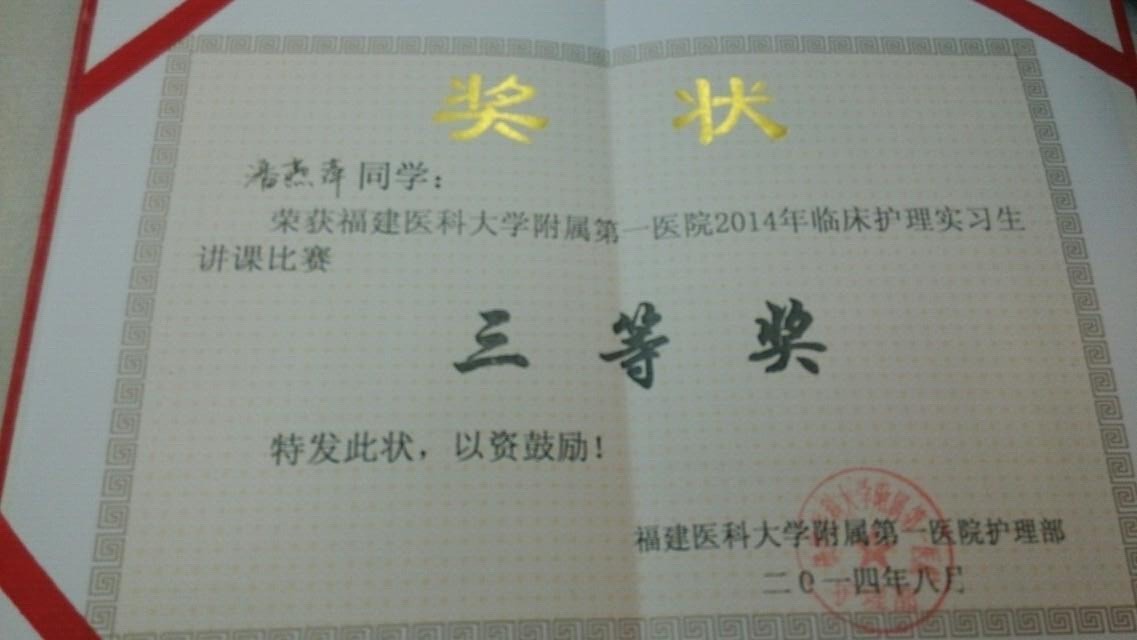 奖 状
潘燕萍同学：
荣获福建医科大学附属第一医院2014年临床护理实习生
讲课比赛
三 等 奖
特发此状，以资鼓励！
福建医科大学附属第一医院护理部
二0一四年八月